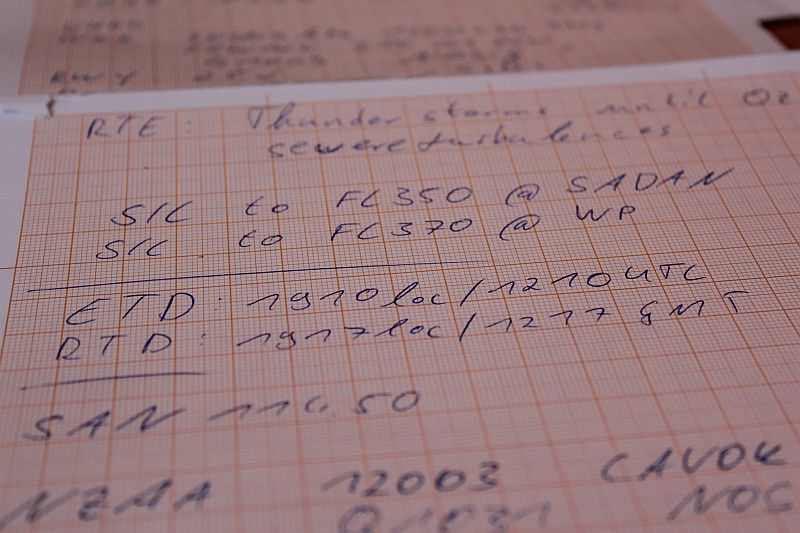 RTE: Thunderstorms until 02
sewere turbulences
S/C to FL350 @ SADAN
S/C to FL370 @ WP
ETD: 1910loc/1210UTC
RTD: 1917loc/1217 GMT
SAN 114.50
NZAA 12003 CAVOK
Q1031 NOS